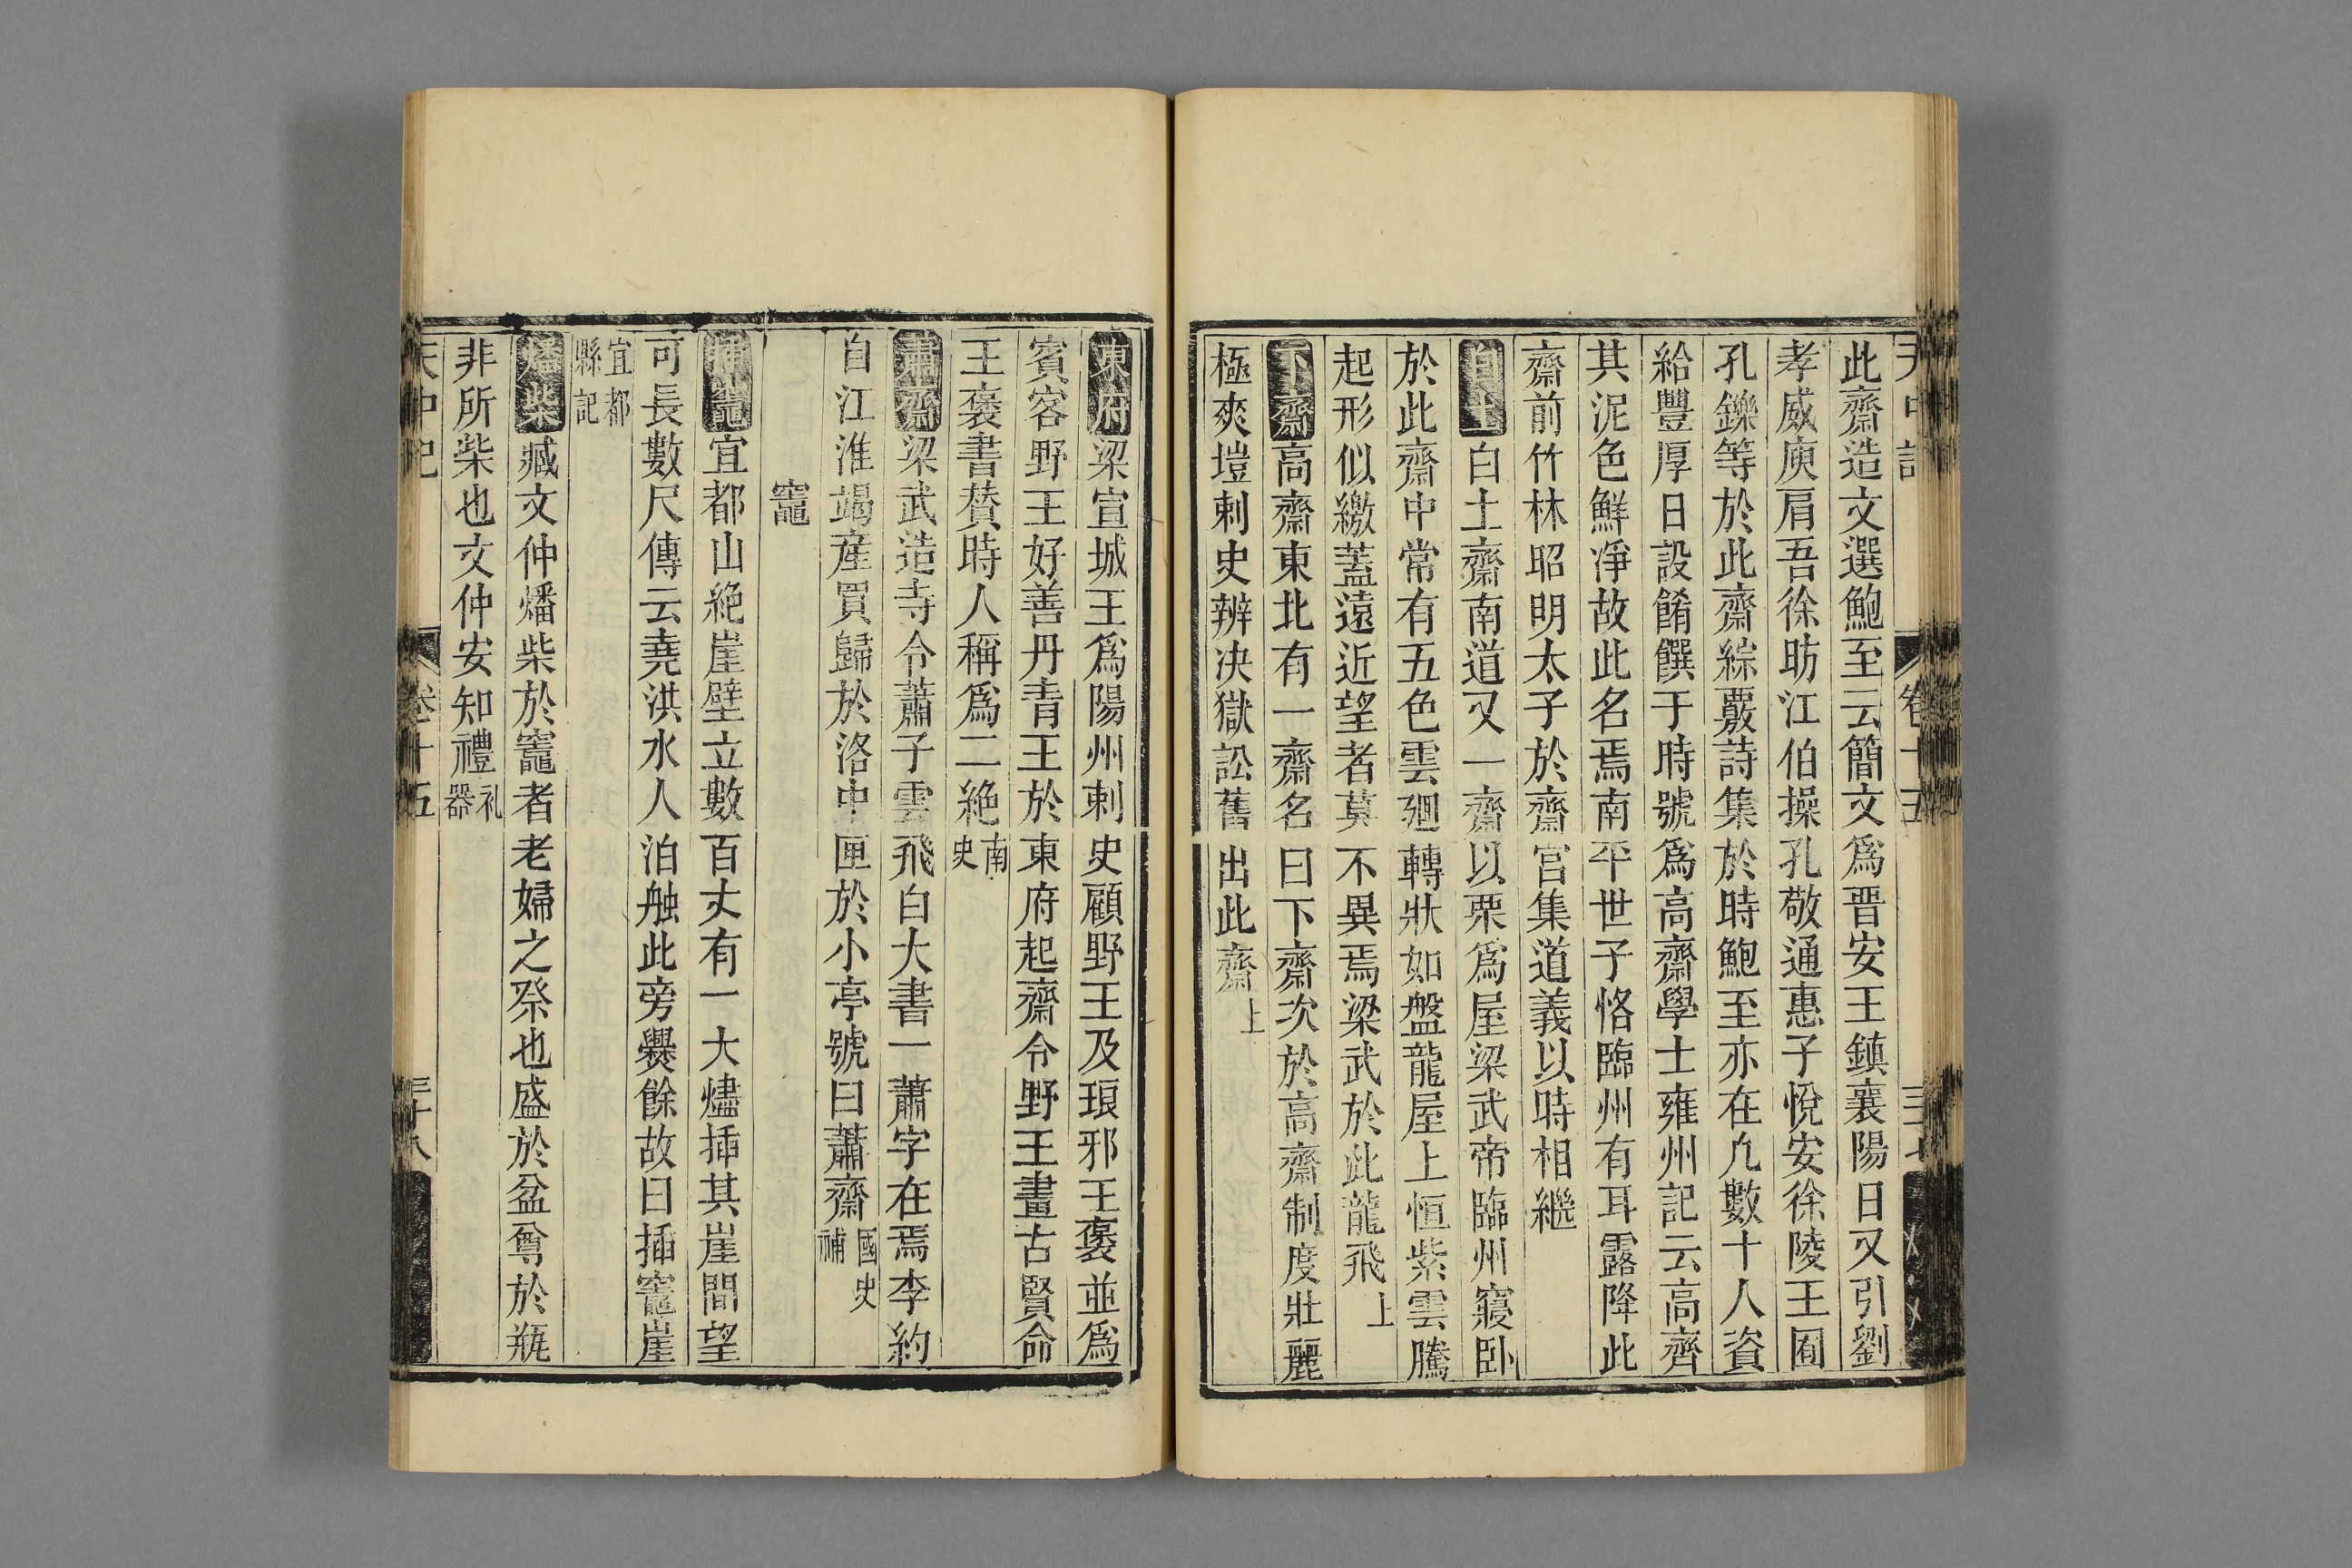 天中記 卷十五
此齋造文選鮑至云簡文爲晋安王鎮襄陽日又引劉
孝威庾肩吾徐昉江伯操孔敬通惠子悅安徐陵王囿
孔鑠等於此齋綜覈詩集於時鮑至亦在凢數十人資
給豐厚日設餚饌于時號爲高齋學士雍州記云高齊
其泥色鮮凈故此名焉南平世子恪臨州有耳露降此
齋前竹林昭明太子於齋宫集道義以時相繼
白土白土齋南道又一齋以栗爲屋梁武帝臨州寢卧
於此齋中常有五色雲廻轉狀如盤龍屋上恒紫雲騰
起形似繖蓋遠近望者莫不異焉梁武於此龍飛上
下齋高齋東北有一齋名曰下齋次於高齋制度壯麗
極爽塏刺史辨决獄訟舊出此齋上
東府梁宣城王爲陽州刺史顧野王及琅邪王褒並爲
賓客野王好善丹青王於東府起齋令野王畫古賢命
王褒書賛時人稱爲二絶南史
蕭齋梁武造寺令蕭子雲飛白大書一蕭字在焉李約
自江淮竭産買歸於洛中匣於小亭號曰蕭齋國史補
竈
揷竈宜都山絶崖壁立數百丈有一大燼揷其崖間望
可長數尺傳云堯洪水人泊舩此旁爨餘故曰揷竈崖
宜都縣記
燔柴臧文仲燔柴於竈者老婦之祭也盛於盆尊於瓶
非所柴也文仲安知禮礼器
天中記 卷十五 三十八